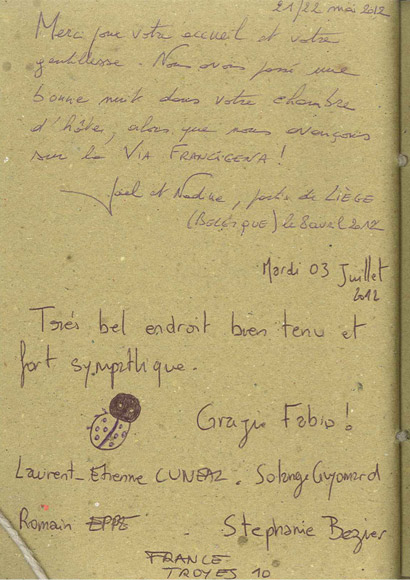 21/22 mai 2012
Merci pour votre accueil et votre
gentillesse. Nous avons passé une
bonne nuit dans votre chambre
d'hôtes, alors que nous avançons
sur la VIA FRANCIGENA !
Joël et Nadine, partis de LIÈGE
(BELGIQUE) le 8 avril 2012
Mardi 03 Juillet
2012
Très bel endroit bien tenu et
fort sympathique.
Grazie Fabio !
Laurent-Etienne CUNEAZ. Solange Guyomard
Romain EPPE. Stephanie Bezier
FRANCE
TROYES 10